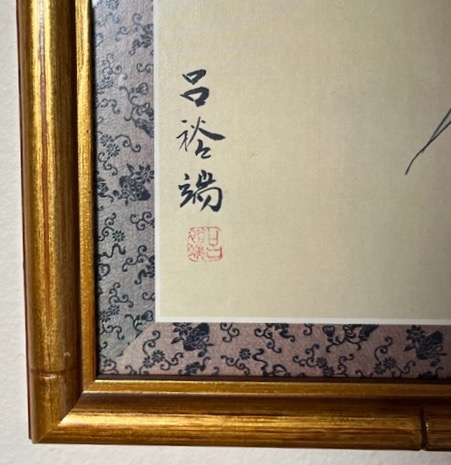 呂裕端